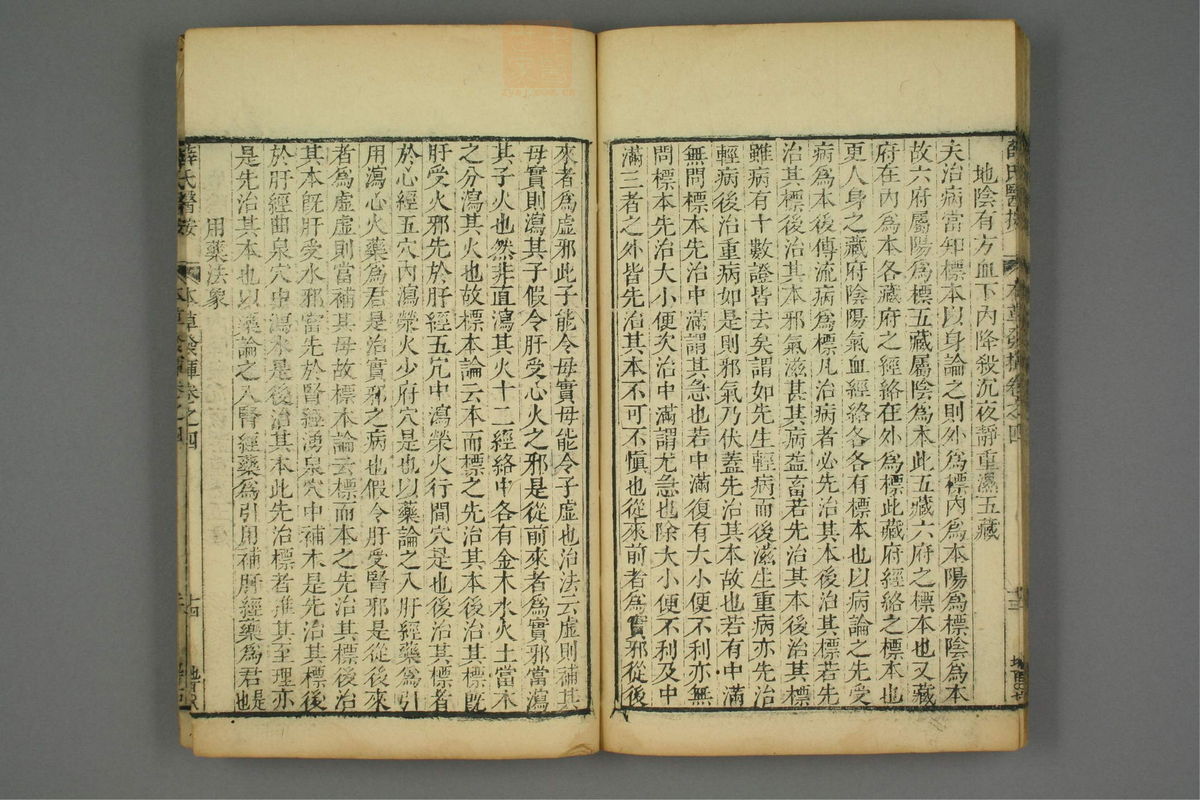 地陰有方血下內降殺沉夜靜重濕五藏
夫治病當知標本以身論之則外爲標內爲本陽爲標陰爲本
故六府屬陽爲標五藏屬陰爲本此五藏六府之標本也又藏
府在內爲本各藏府之經絡在外爲標此藏府經絡之標本也
更人身之藏府陰陽氣血經絡各各有標本也以病論之先受
病爲本後傳流病爲標凡治病者必先治其本後治其標若先
治其標後治其本邪氣滋甚其病益畜若先治其本後治其標
雖病有十數證皆去矣謂如先生輕病而後滋生重病亦先治
輕病後治重病如是則邪氣乃伏蓋先治其本故也若有中滿
無問標本先治中滿謂其急也若中滿復有大小便不利亦無
問標本先治大小便次治中滿謂尤急也除大小便不利及中
滿三者之外皆先治其本不可不愼也從來前者爲實邪從後
薛氏醫按 本草發揮卷之四
來者爲虛邪此子能令母實母能令子虛也治法云虛則補其
母實則瀉其子假令肝受心火之邪是從前來者爲實邪當瀉
其子火也然非直瀉其火十二經絡中各有金木水火土當木
之分瀉其火也故標本論云本而標之先治其本後治其標旣
肝受火邪先於肝經五穴中瀉滎火行間穴是也後治其標者
於心經五穴內瀉滎火少府穴是也以藥論之入肝經藥爲引
用瀉心火藥爲君是治實邪之病也假令肝受腎邪是從後來
者爲虛虛則當補其母故標本論云標而本之先治其標後治
其本旣肝受水邪當先於腎經湧泉穴中補木是先治其標後
於肝經曲泉穴中瀉水是後治其本此先治標者推其至理亦
是先治其本也以藥論之入腎經藥爲引用補肝經藥爲君是也
用藥法象
薛氏醫按 本草發揮卷之四 十四